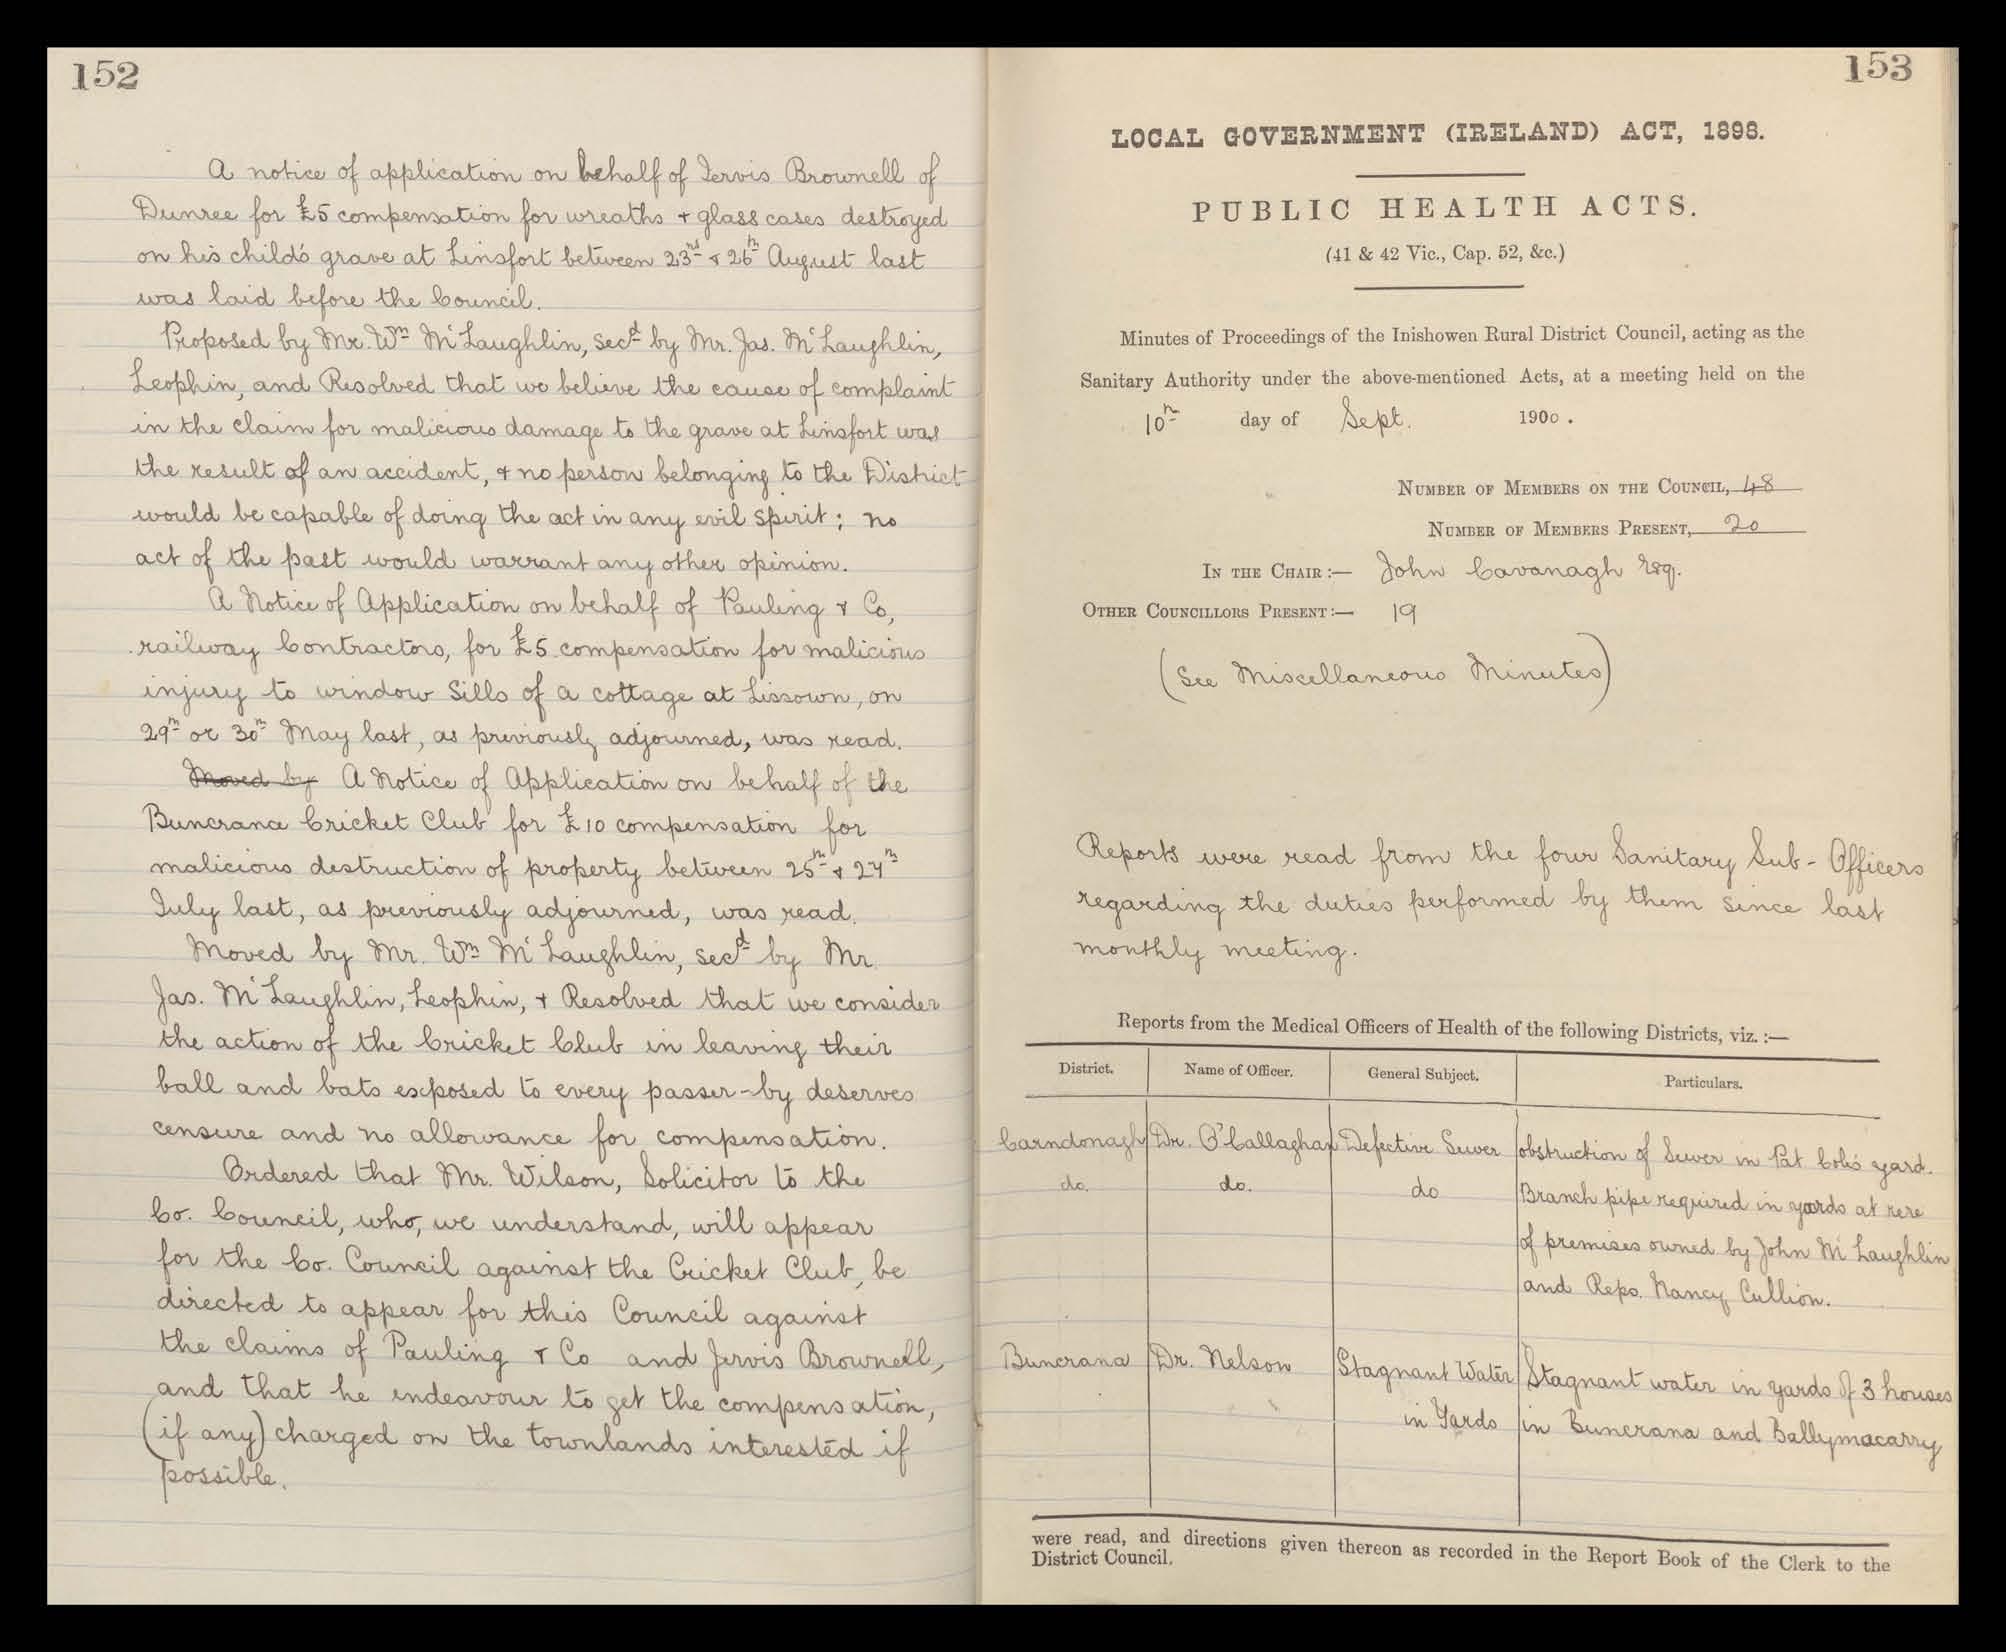 152
A notice of application on behalf of Jervis Brownell of
Dunree for £5 compensation for wreaths & glass cases destroyed
on his child's grave at Linsfort between 23rd & 26th August last
was laid before the Council.
Proposed by Mr. Wm McLaughlin, Secd by Mr. Jas. McLaughlin,
Leophin, and Resolved that we believe the cause of complaint
in the claim for malicious damage to the grave at Linsfort was
the result of an accident, & no person belonging to the District
would be capable of doing the act in any evil spirit; no
act of the past would warrant any other opinion.
A Notice of Application on behalf of Pauling & Co,
railway Contractors, for £5 compensation for malicious
injury to window Sills of a cottage at Lissown, on
29th or 30th May last, as previously adjourned, was read.
Moved by A Notice of Application on behalf of the
Buncrana Cricket Club for £10 compensation for
malicious destruction of property between 25th & 27th
July last, as previously adjourned, was read.
Moved by Mr. Wm McLaughlin, Secd by Mr.
Jas. McLaughlin, Leophin, & Resolved that we consider
the action of the Cricket Club in leaving their
ball and bats exposed to every passer-by deserves
censure and no allowance for compensation.
Ordered that Mr. Wilson, Solicitor to the
Co. Council, who, we understand, will appear
for the Co. Council against the Cricket Club, be
directed to appear for this Council against
the claims of Pauling & Co and Jervis Brownell,
and that he endeavour to get the compensation,
(if any) charged on the townlands interested if
possible.
153
LOCAL GOVERNMENT (IRELAND) ACT, 1898.
PUBLIC HEALTH ACTS.
(41 & 42 Vic., Cap. 52, &c.)
Minutes of Proceedings of the Inishowen Rural District Council, acting as the
Sanitary Authority under the above-mentioned Acts, at a meeting held on the
10th day of Sept. 1900.
NUMBER OF MEMBERS ON THE COUNCIL, 48
NUMBER OF MEMBERS PRESENT, 20
IN THE CHAIR:— John Cavanagh Esq.
OTHER COUNCILLORS PRESENT:— 19
(See Miscellaneous Minutes)
Reports were read from the four Sanitary Sub-Officers
regarding the duties performed by them since last
monthly meeting.
Reports from the Medical Officers of Health of the following Districts, viz.:—
District. Name of Officer. General Subject. Particulars.
Carndonagh Dr. O'Callaghan Defective Sewer obstruction of Sewer in Pat Cole's yard.
do. do. do Branch pipe required in yards at rere
of premises owned by John McLaughlin
and Reps. Nancy Cullion.
Buncrana Dr. Nelson Stagnant Water Stagnant water in yards of 3 houses
in Yards in Buncrana and Ballymacarry
were read, and directions given thereon as recorded in the Report Book of the Clerk to the
District Council.